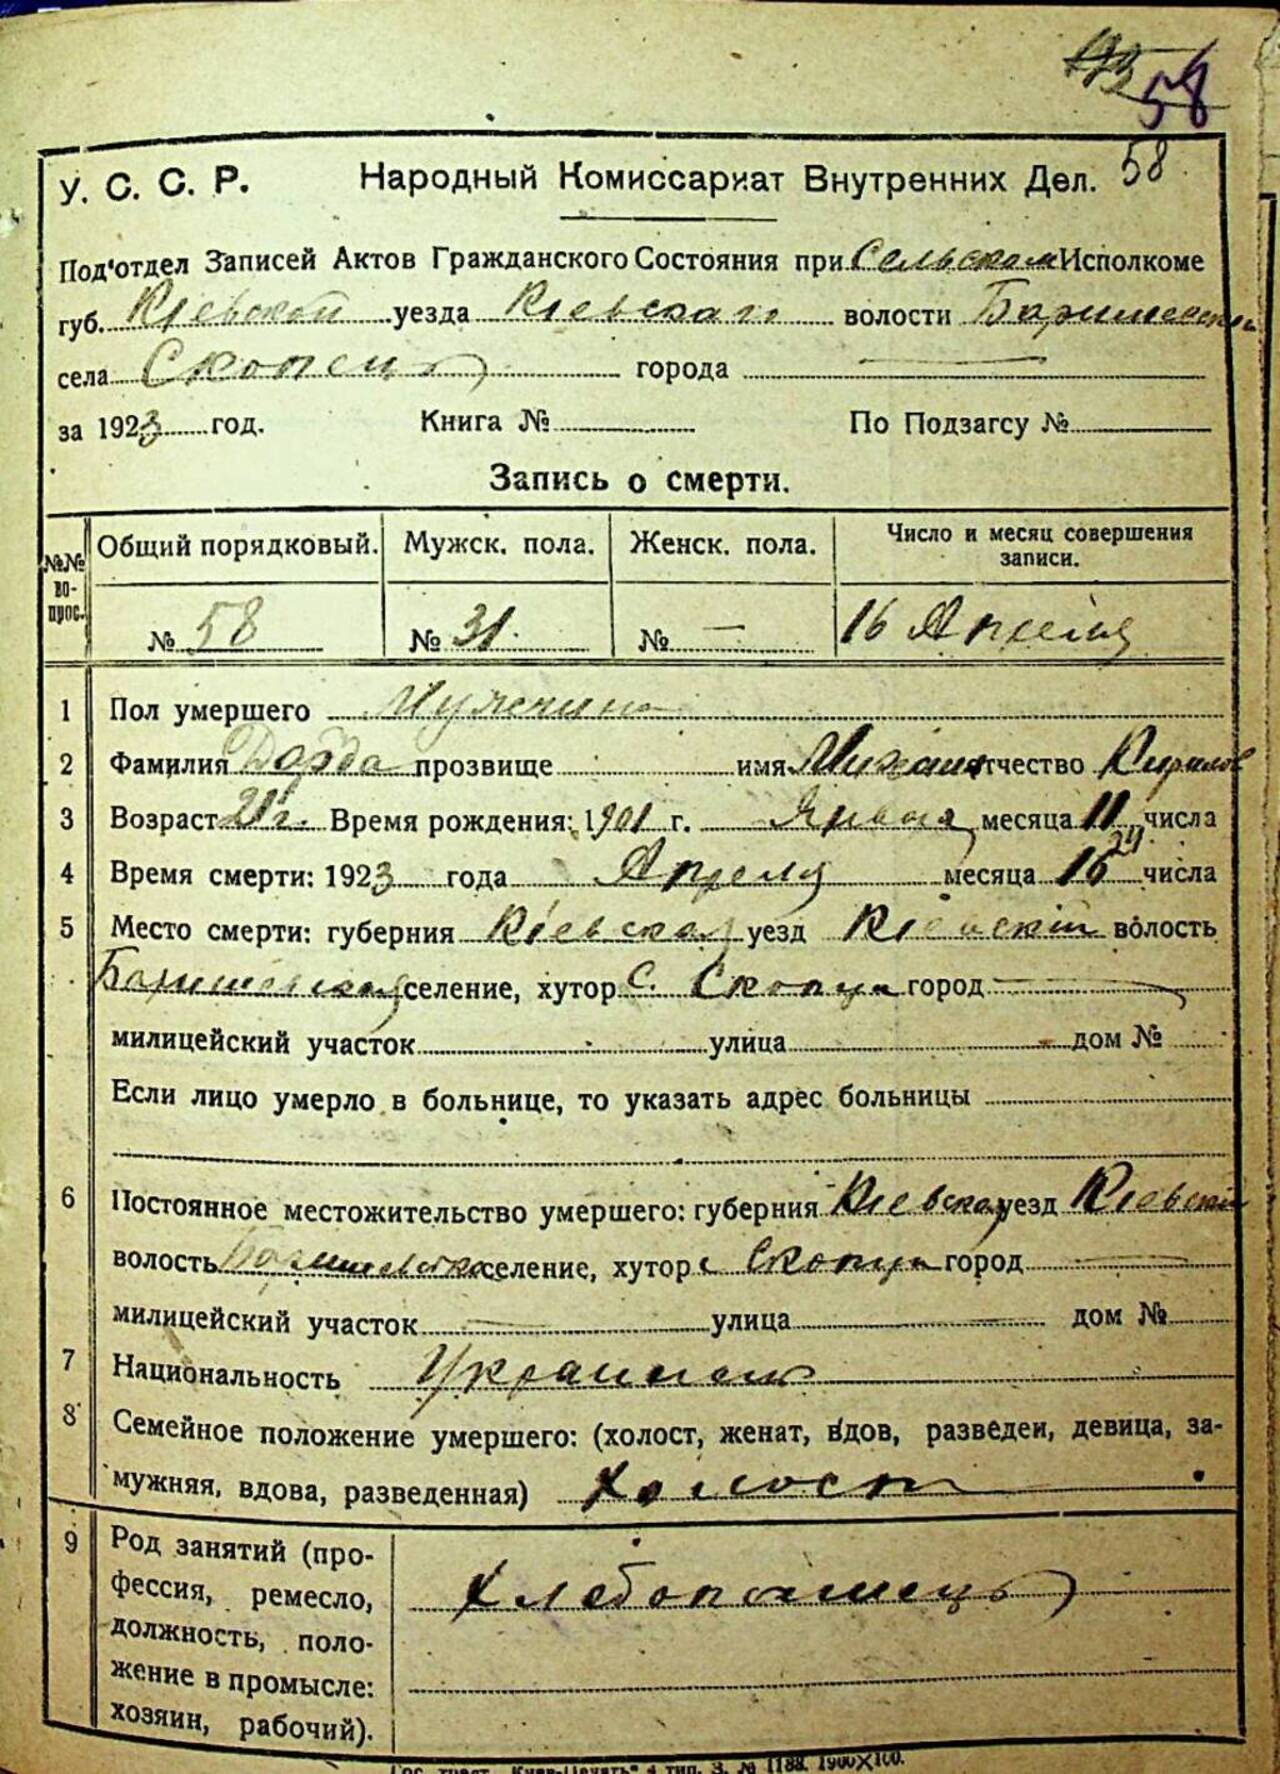 58
58
У. С. С. Р. Народный Комиссариат Внутренних Дел.
Под'отдел Записей Актов Гражданского Состояния при Сельском Исполкоме
губ. Кіевской уезда Кіевскаго волости Баришевской
села Скопець города —
за 1923 год. Книга № По Подзагсу №
Запись о смерти.
№№ вопрос. Общий порядковый. Мужск. пола. Женск. пола. Число и месяц совершения записи.
№ 58 № 31. № — 16 Апреля
1 Пол умершего Мужчина
2 Фамилия прозвище имя Михаил отчество Кирилов
3 Возраст 21 г. Время рождения: 1901 г. Января месяца 11 числа
4 Время смерти: 1923 года Апреля месяца 16 числа
5 Место смерти: губерния Кіевская уезд Кіевскій волость
Баришевская селение, хутор с. Скопци город —
милицейский участок улица дом №
Если лицо умерло в больнице, то указать адрес больницы
6 Постоянное местожительство умершего: губерния Кіевская уезд Кіевский
волость Баришевская селение, хутор с Скопци город —
милицейский участок — улица — дом №
7 Национальность Украинец
8 Семейное положение умершего: (холост, женат, вдов, разведен, девица, за-
мужняя, вдова, разведенная) Холост
9 Род занятий (про-
фессия, ремесло, Хлебопашець
должность, поло-
жение в промысле:
хозяин, рабочий).
тип. 3. № 1188. 1900X100.